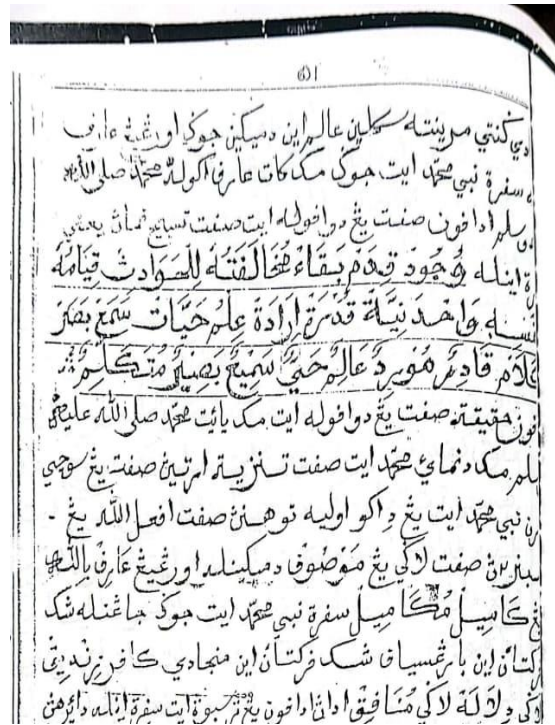 دي ڬنتي مرينته سكلين عالم اين دميكين جوڬ اورڠ يڠ عارف
سفرة نبي محمد ايت جوڬ مك كات عارف اكوله محمد صلى الله
وسلم ادافون صفت يڠ دوافوله ايت صفت تسبيح نماڽ يعني
اينله وُجُود قِدَم بَقَاء مُخَالَفَتُهُ لِلْحَوَادِث قِيَامُهُ
بنفسه وَاحِدَنِيَّة قُدْرَة اِرَادَة عِلْم حَيَات سَمَع بَصَر
كَلَام قَادِر مُرِيد عَالِم حَيّ سَمِيع بَصِير مُتَكَلِّم
فون حقيقتڽ صفت يڠ دوافوله ايت مك يائت محمد صلى الله عليه
وسلم مك دنمائي محمد ايت صفت تنزيه ارتيڽ صفت يڠ سوچي
نبي محمد ايت يڠ داكو اوليه توهنڽ صفت افعل الله يڠ
صفت لاڬي يڠ مَوْصُوف دميكينله اورڠ يڠ عَارِف بِالله
يڠ كَامِيل مُكَامِيل سفرة نبي محمد ايت جوڬ جاڠنله شك
فركتاءن اين بارڠسياف شك فركتاءن اين منجادي كافر زنديق
لاڬي دلالة لاڬي مُنَافق ادافون يڠ ترسبوة ايت سفرة اينله دائرهن